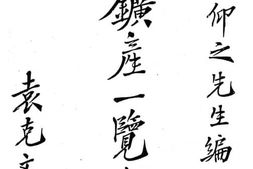 仰之先生編
鑛產一覽
袁克文